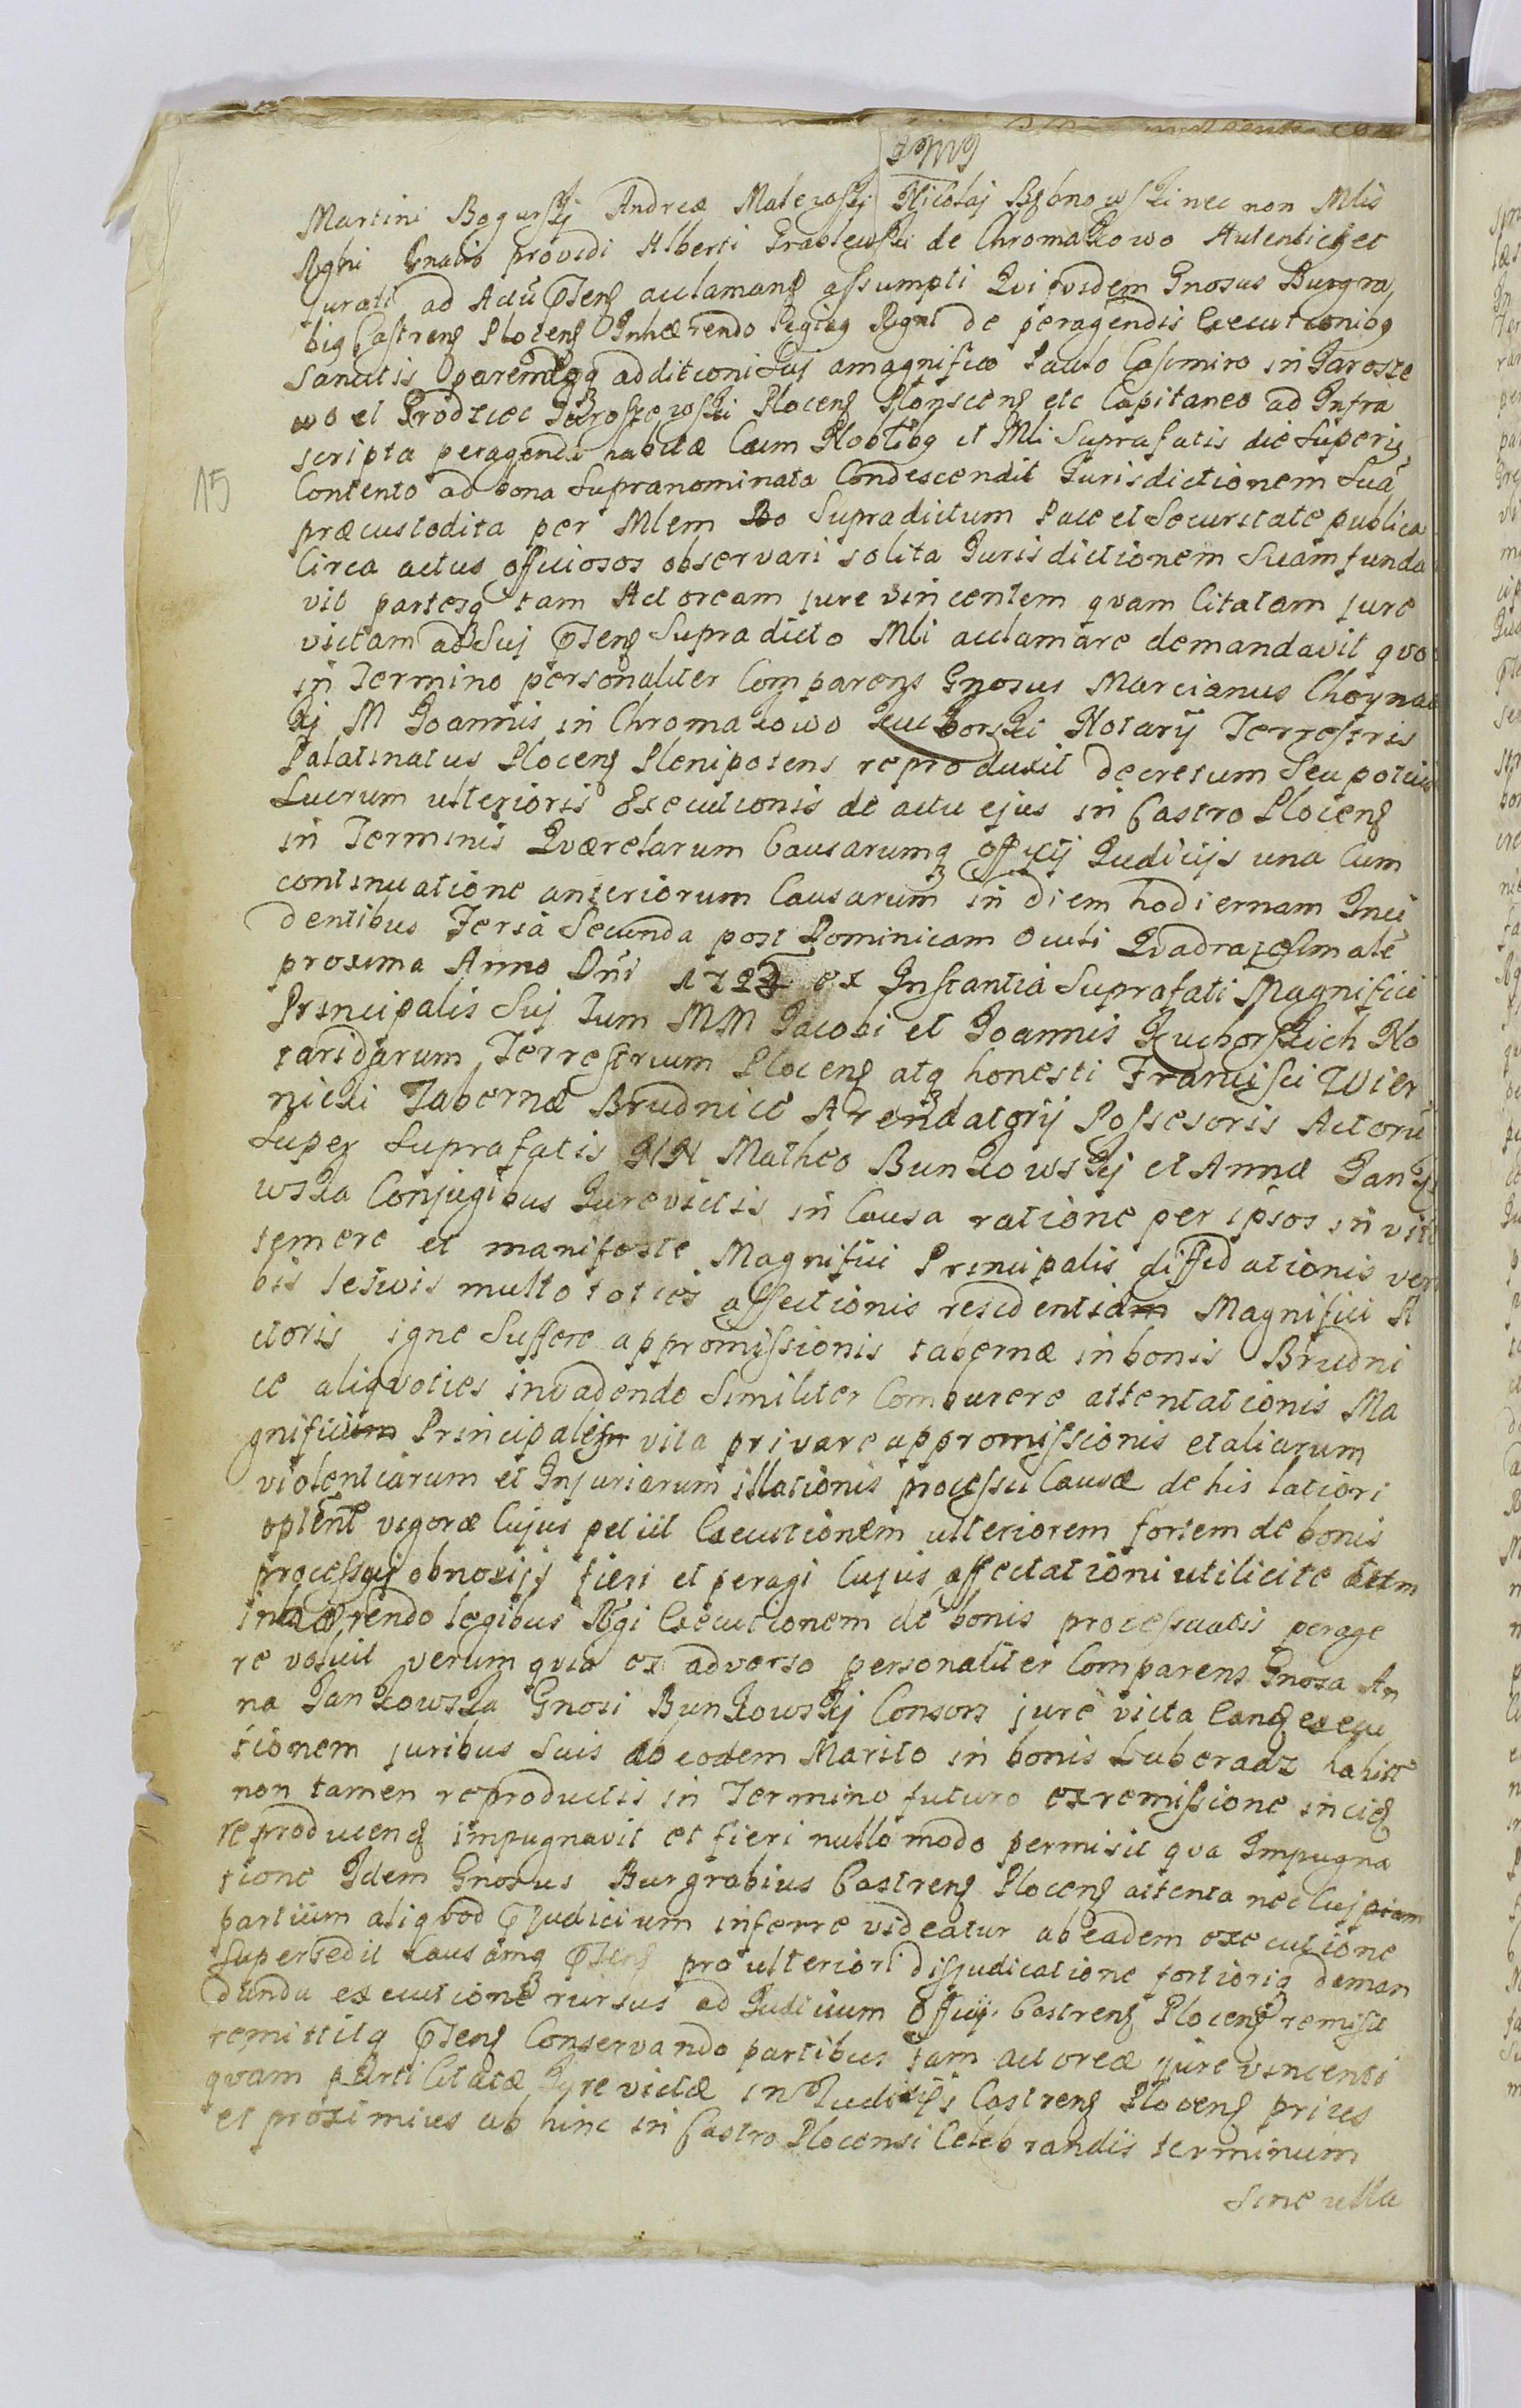 Martini Bogurskÿ Andreæ Malewskÿ Nicolaj Bębnowski nec non Mlis
Rgni Gnalis providi Alberti Grablewski de Chromakowo Autentici et
jurati ad Actū pñtens acclamans assumpti Qui quidem Gnosus Burgra
big Castrens Plocens Inhærendo Legibg Rgni de peragendis Executionibg
Sancitis paremq additioni Suj a magnifico Paulo Casimiro in Jarosze
wo et Brodzice Jaroszewski Plocens Plonscens etc Capitaneo ad Infra
scripta peragenda habitæ Cum Nobilibg et Mli Suprafatis die Superig
15
Contento ad bona Supranominata Condescendit Jurisdictionem Suā
præcustodita per Mlem Supradictum Pace et Securitate publica
Circa actus officiosos observari solita Jurisdictionem Suam funda
vit partesq tam Actoream jure vincentem quam Citatam jure
victam ad Suj pñtens Supradicto Mli acclamare demandavit quo
in Termino personaliter Comparens Gnosus Marcianus Choyna
kj M Joannis in Chromakowo Zuchorski Notarÿ Terrestris
Palatinatus Plocens Plenipotens reproduxit decretum Seu potius
Lucrum ulterioris Executionis de actu ejus in Castro Plocens
in Terminis Quærelarum Causarumq Officÿ Judicÿs una Cum
continuatione anteriorum Causarum in diem hodiernam Inci
dentibus Feria Secunda post Dominicam Oculi Quadragesimalē
proxima Anno Dni 172 ex Instantia Suprafati Magnifici
Principalis Suj Tum MM Jacobi et Joannis Zuchorskich No
taridarum Terrestrium Plocens atq honesti Francisci Wier
nicki Tabernæ Brudnice Arendatorÿ Possesoris Actorū
Super Suprafatis NN Matheo Bunkowskÿ et Annæ Jank
wska Conjugibus Jurevictis in Causa ratione per ipsos invit
temere et manifeste Magnifici Principalis diffidationis ver
bis lesivis multototies affectionis residentiam Magnifici A
ctoris igne Suffere appromissionis tabernæ in bonis Brudni
ce aliquoties invadendo Similiter Comburere attentationis Ma
gnificum Principalem vita privare appromissionis et aliarum
violentiarum et Injuriarum illationis processu Causæ de his latiori
optent vigoræ Cujus petiit Executionem ulteriorem fortem de bonis
processui obnoxijs fieri et peragi Cujus affectationi utilicite
inhærendo legibus Rgi Executionem de bonis processualis perage
re voluit verum quia ex adverso personaliter Comparens Gnosa An
na Jankowska Gnosi Bunkowskÿ Consors jure victa eand execu
tionem juribus Suis ab eodem Marito in bonis Luberadz habitt
non tamen reproductis in Termino futuro ex remissione incid
reproducens impugnavit et fieri nullo modo permisit qua Impugna
tione Idem Gnosus Burgrabius Castrens Plocens attenta nec Cujpiam
partium aliqbod pJudicium inferre videatur ab eadem executione
Supersedit Causamq pñtens pro ulteriori disjudicatione fortioriq deman
danda executione rursus ad Judicium Officÿ Castrens Plocens remisit
remittitq pñtens Conservando partibus tam actoreæ jure vincenti
quam parti Citatæ Jure victæ in Judicÿs Castrens Plocens prius
et proximius ab hinc in Castro Plocensi Celebrandis terminum
Sine ulla